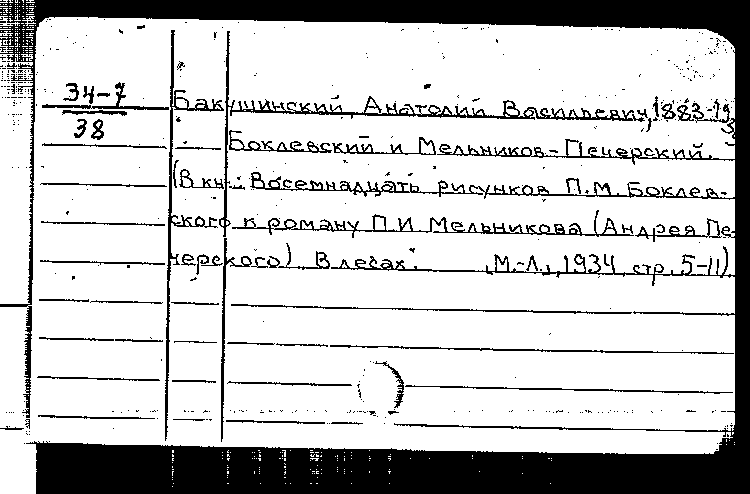 34-7
38
Бакушинский, Анатолий Васильевич, 1883-19
Боклевский и Мельников-Печерский.
(В кн.: Восемнадцать рисунков П.М. Боклев-
ского к роману П.И Мельникова (Андрея Пе-
черского) В лесах. М.-Л., 1934, стр. 5-11)